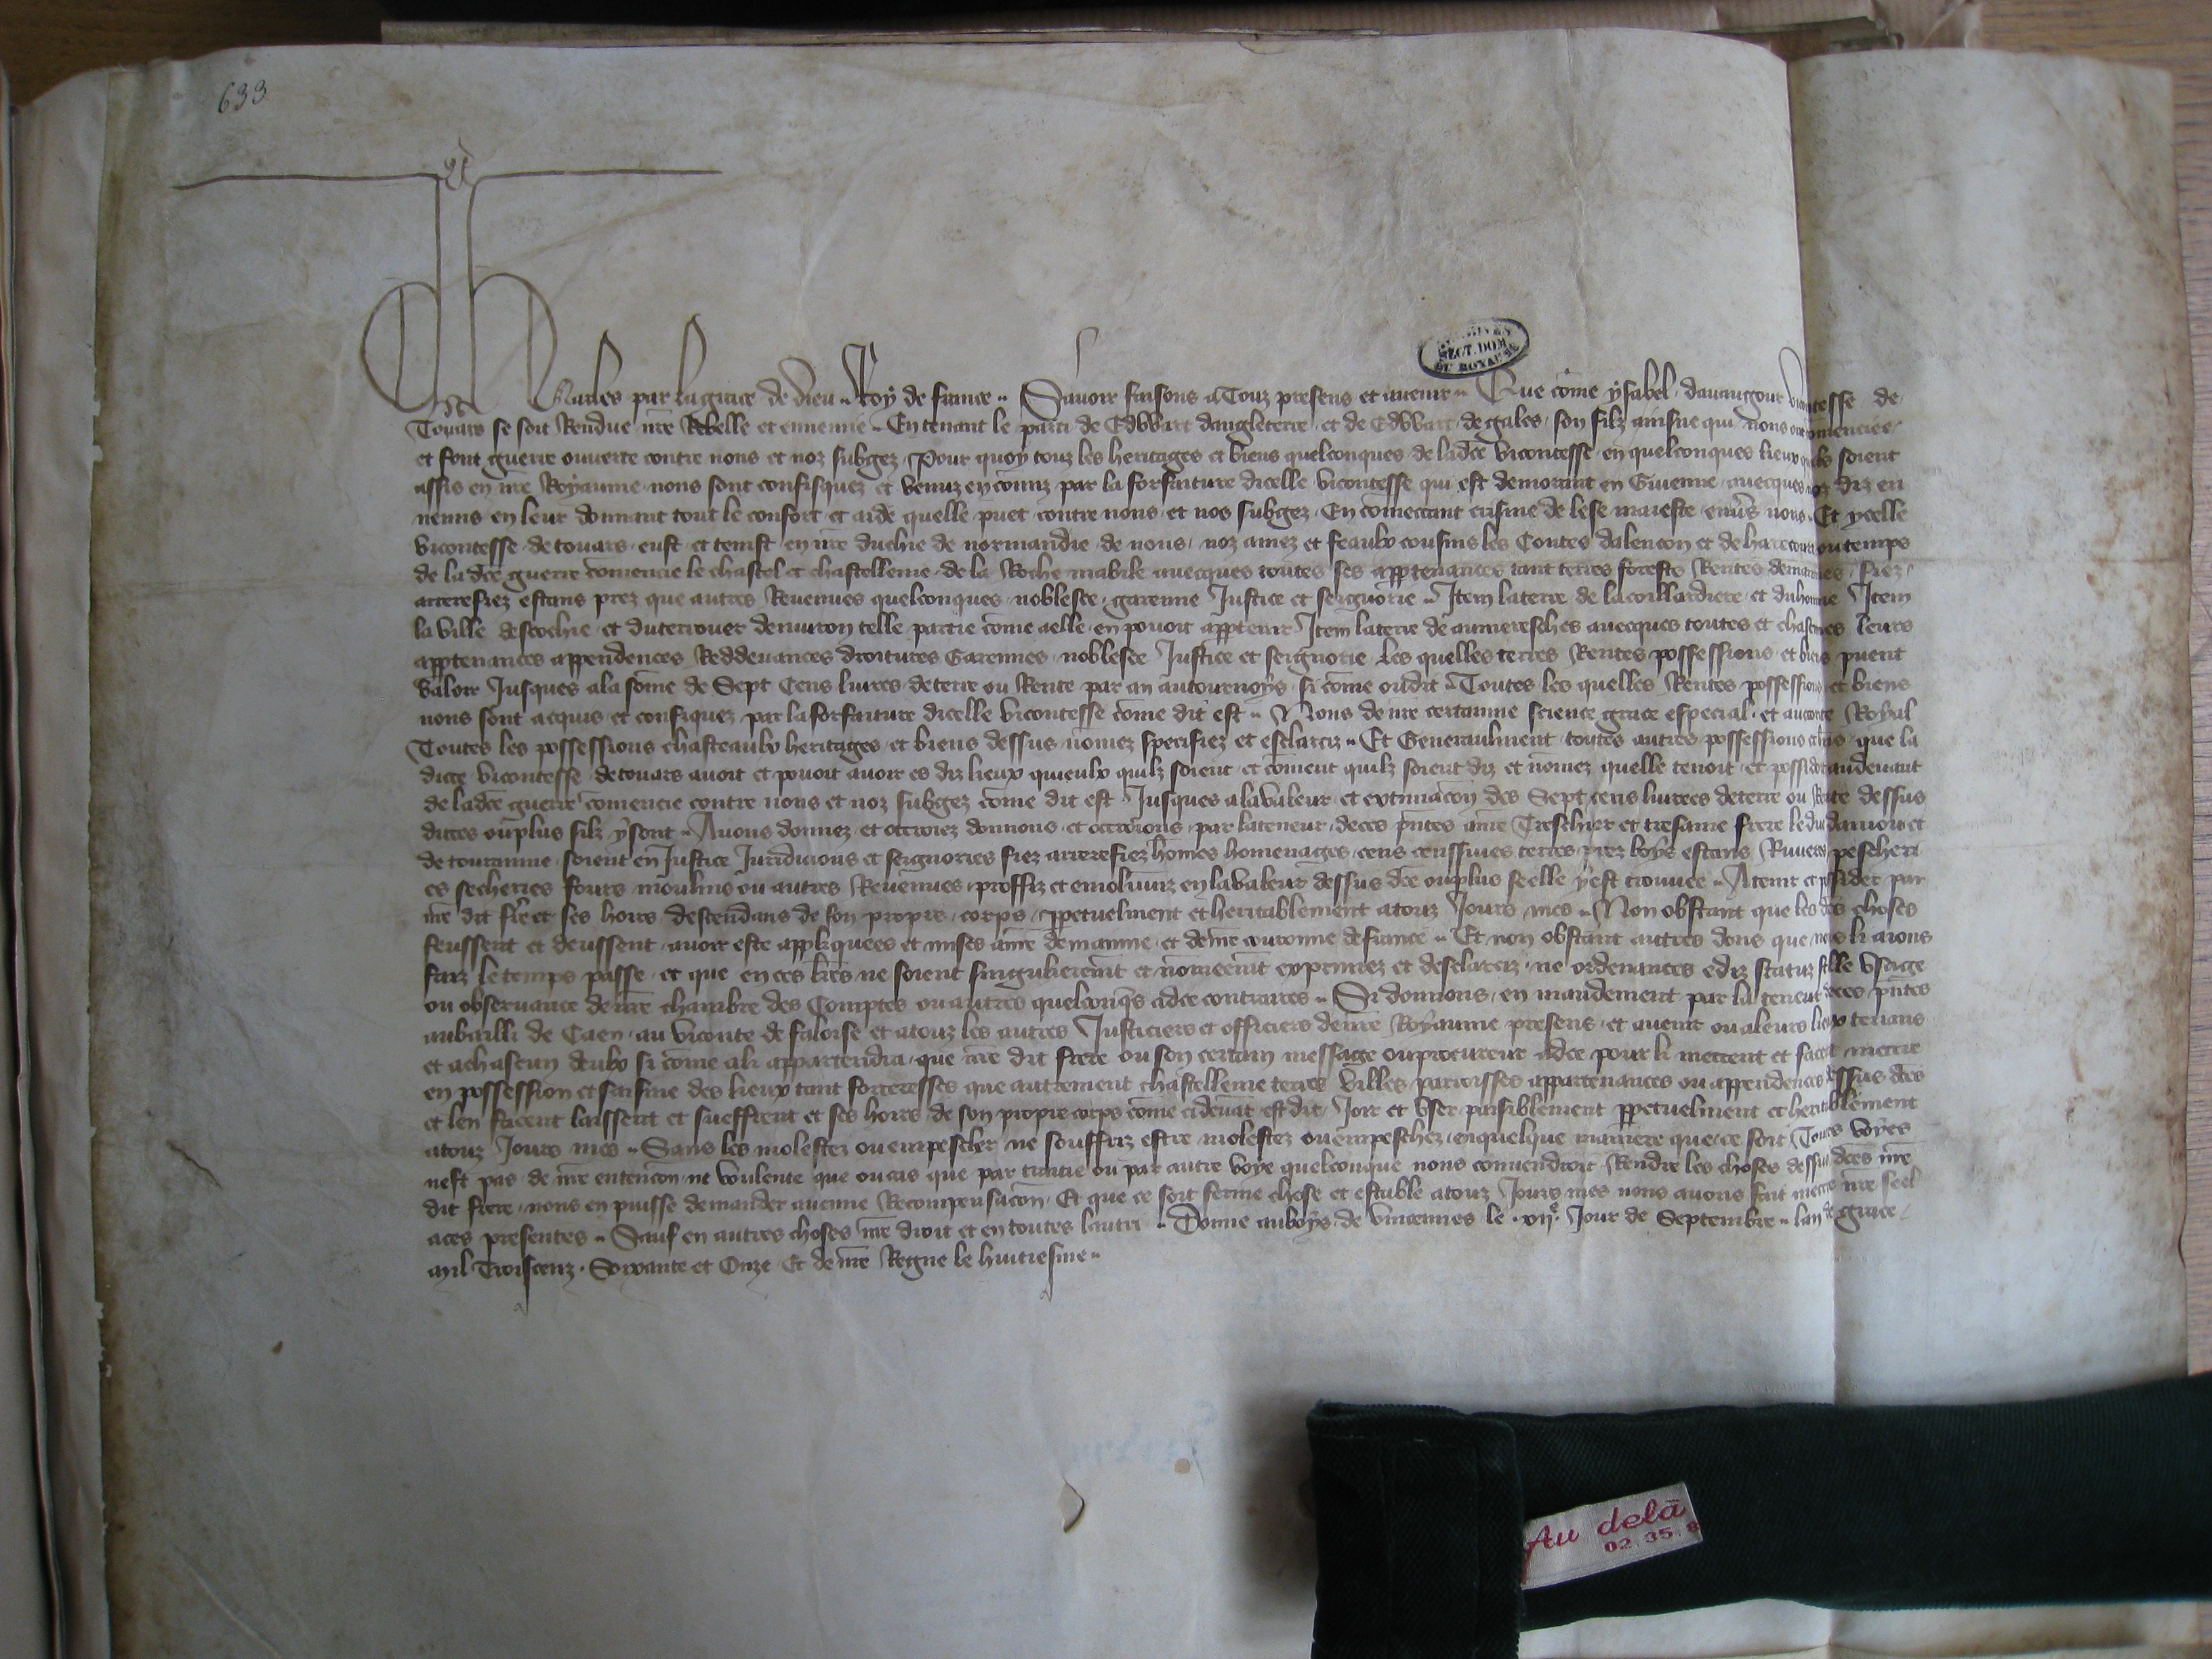 633
ARCHIVES
SECT. DOM.
DU ROYAUME
Charles par la grace de dieu Roy de france Savoir faisons a Touz presens et avenir Que come ysabel davaugour vicontesse de
Touars se soit Rendue nre Rebelle et ennemie En tenant le parti de Edwart dangleterre et de Edwart de gales son filz ainsne qui nous ont comenciee
et font guerre ouverte contre nous et noz subgez Pour quoy touz les heritages et biens quelconques de ladce vicontesse en quelconques lieux quils soient
assis en nre Royaume nous sont confisquez et venuz en comiz par la forfaiture dicelle vicontesse qui est demorant en Guienne avecques noz diz en
nemis en leur donnant tout le confort et aide quelle puet contre nous et nos subgez En comectant crisme de lese maieste envers nous Et ycelle
vicontesse de touars eust et tenist en nre duchie de normandie de nous noz amez et feaulx cousins les Contes dalencon et de harecourt ou temps
de ladce guerre comencie le chastel et chastellenie de la Roche mabile avecques toutes ses apptenances tant terres forests Rentes demaines fiez
arrerefiez estans prez que autres Revenues quelconques noblesce garenne Justice et seignorie Item la terre de la coillardiere et du homme Item
la ville descochie et du terrouer denviron telle partie come a elle en povoit apptenir Item la terre de aumeresches avecques toutes et chascunes leurs
apptenances appendences Reddevances droitures Garennes noblesce Justice et seignorie Les quelles terres Rentes possessions et biens puent
valoir Jusques a la some de Sept Cens livrees de terre ou Rente par an a tournoys si come on dit Toutes les quelles Rentes possessions et biens
nous sont acquis et confiquez par la forfaiture dicelle vicontesse come dit est Nous de nre certainne science grace especial et auctorite Royal
Toutes les possessions chasteaulx heritages et biens dessus nomez specifiez et esclarciz Et Generaulment toutes autres possessions et biens que la
dicte vicontesse de touars avoit et povoit avoir es diz lieux quieulx quilz soient et coment quilz soient diz et nomez quelle tenoit et possidoit au devant
de ladce guerre comencie contre nous et noz subgez come dit est Jusques a la valeur et extimacon des Sept cens livrees de terre ou Rente dessus
dictes ou plus silz y sont Avons donnez et ottroiez donnons et ottroions par la teneur de ces pntes a nre Treschier et tresame frere le duc danjou et
de tourainne soient en Justice Juridicions et seignories fiez arrerefiez homes homenages cens censsives terres prez boys estans Rivieres pescheri
es secheries fours moulins ou autres Revenues proffiz et emolumz en la valeur dessus dce ou plus se elle y est trouvee A tenir et possider par
nre dit frere et ses hoirs descendans de son propre corps ppetuelment et heritablement a touz Jours mes Non obstant que les dces choses
feussent et deussent avoir este appliquees et mises a nre demainne et de nre couronne de france Et non obstant autres dons que nous li aions
faiz le temps passe et que en ces lres ne soient singulierement et nomeemt exprimez et desclarciz ne ordenances ediz statuz stille usaige
ou observance de nre chambre des Comptes ou autres quelconqs a dce contraires Si donnons en mandement par la teneur de ces pntes
au bailli de Caen au viconte de faloise et a touz les autres Justiciers et officiers de nre Royaume presens et avenir ou a leurs lieux tenans
et a chascun deulx si come a li appartendra que nre dit frere ou son certain message ou procureur a dce pour li mettent et facet mettre
en possession et saisine des lieux tant forteresses que autrement chastellenie terres villes parroisses appartenances ou appendences dessus dces
et len facent laissent et sueffrent et ses hoirs de son propre corps come ci devat est dit Joir et user paisiblement ppetuelment et heritablement
a touz Jours mes Sans les molester ou empescher ne souffriz estre molestez ou empeschez en quelque maniere que ce soit Toutes voyes
nest pas de nre entencon ne voulente que ou cas que par traitie ou par autre voye quelconque nous convendroit Rendre les choses dessus dces nre
dit frere nous en puisse demander aucune Recompensacon Et que ce soit ferme chose et estable a touz Jours mes nous avons fait mettre nre seel
a ces presentes Sauf en autres choses nre droit et en toutes lautri Donne au boys de vincennes le xije Jour de Septembre lan de grace
Mil Troiscenz Soixante et Onze Et de nre Regne le huitiesme
Au delà
02.35.8